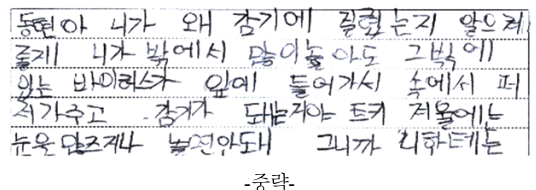 동현아 니가 왜 감기에 걸렸는지 알으켜
줄게 니가 밖에서 많이놀아도 그밖에
있는 바이러스가 입에 들어가서 속에서 퍼
저가주고 감기가 되는거야 트키 저울에는
눈을 만즈거나 놀면안돼 그니까 너한테는
-중략-